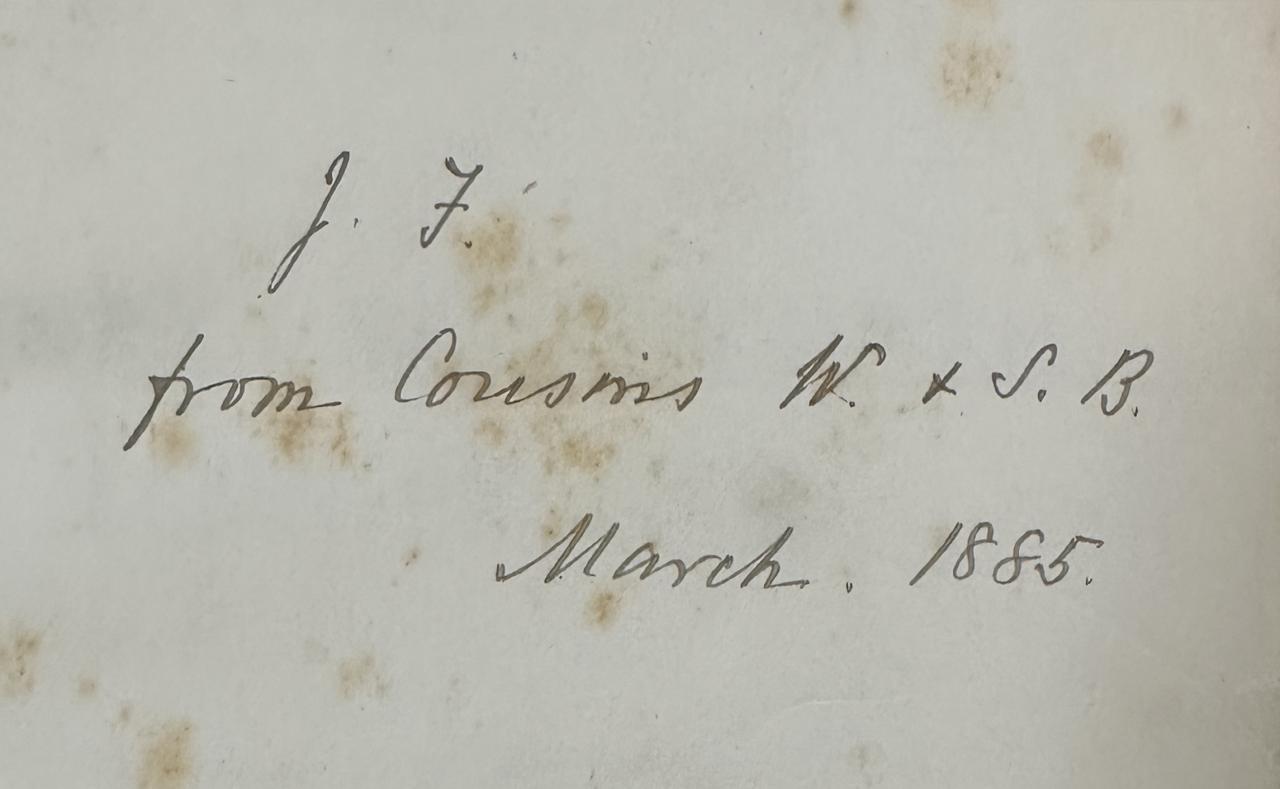 J. F.
from Cousins W. & S. B.
March. 1885.